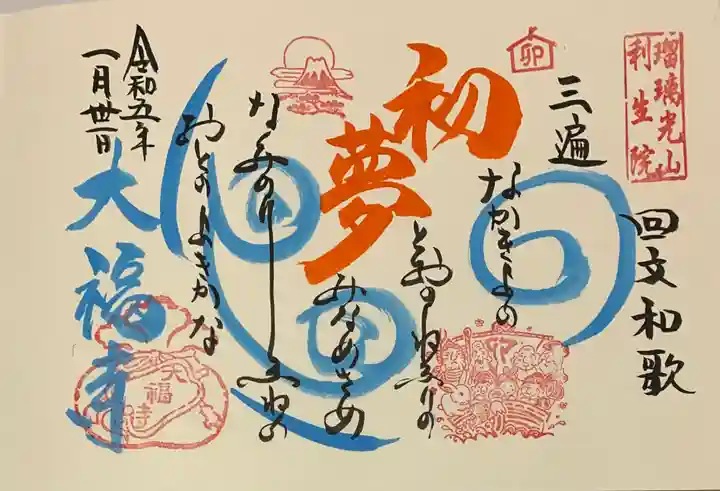 瑠璃光山
利生院
回文和歌
三遍
卯
初夢
なかきよの
とおのねふりの
みなめさめ
なみのりふねの
おとのよきかな
令和五年
一月卅一日
大福寺
大福寺